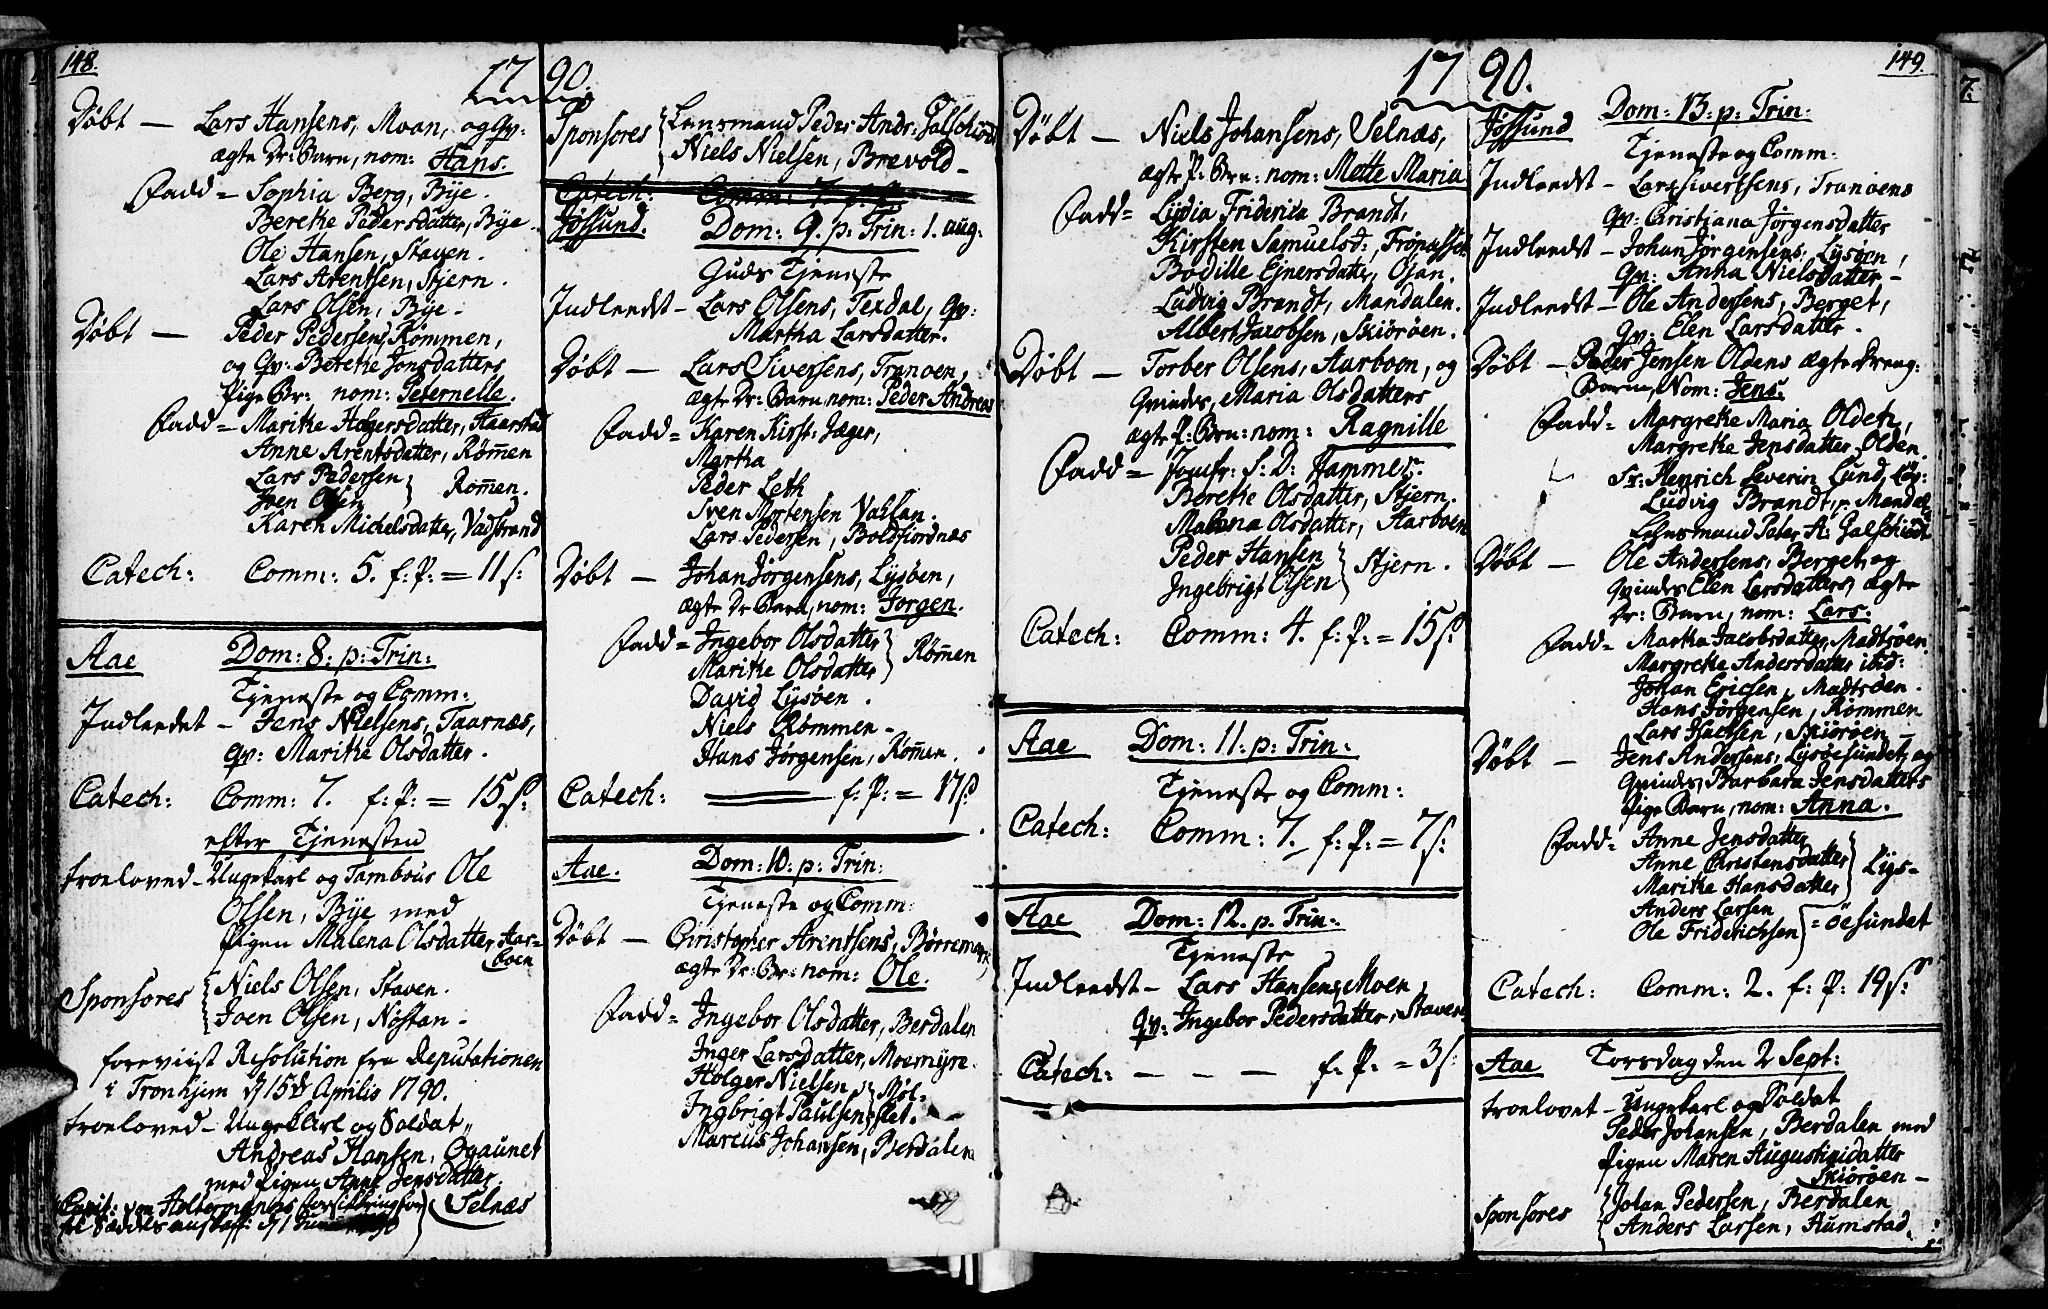 148.
1790.
Døbt — Lars Hansens, Moan, og Qv:
ægte Dr: Barn, nom: Hans.
Fadd = Sophia Berg, Bÿe.
Berethe Pedersdatter, Bÿe.
Ole Hansen, Staven.
Lars Arentsen, Stjern.
Lars Olsen, Bÿe.
Døbt — Peder Pedersens, Rømmen,
og Qv: Berethe Jonsdatters
Pige Br: nom: Peternelle.
Fadd = Marithe Holgersdatter, Haarstad
Anne Arentsdatter, Rømen
Lars Pedersen } Rømen.
Joen Olsen
Karen Michelsdatter, Vadstrand
Catech: Comm: 5. f: P: = 11 s:
Aae Dom: 8: p: Trin:
Tjeneste og Comm:
Indleedet — Jens Nielsens, Taarnæs,
qv: Marithe Olsdatter.
Catech: Comm: 7. f: P: = 15 s:
efter Tjenesten
troeloved — Ungekarl og Tambour Ole
Olsen, Bÿe med
Pigen Malena Olsdatter, Aar=
boen
Sponsores { Niels Olsen, Staven.
Joen Olsen, Nøstan.
foreviist Resolution fra Deputationen
i Tronhjem d 15de Aprilis 1790.
troeloved — Ungekarl og Soldat,
Andreas Hansen, Ogaunet
med Pigen Anne Jensdatter.
Selnæs
Sponsores { Lensmand Peder Andr: Galschiødt
Niels Nielsen, Brevold
Catech: Comm: 7.
Jøssund. Dom: 9. p: Trin: 1. aug:
Guds Tjeneste
Indleedt — Lars Olsens, Terdal, Qv:
Martha Larsdatter.
Døbt — Lars Siversens, Tranoen,
ægte Dr: Barn, nom: Peder Andreas
Fadd = Karen Kirst: Jæger,
Martha
Peder Leth
Iven Mortensen Valsan.
Lars Pedersen, Boldfiordnæs
Døbt — Johan Jørgensens, Lysøen,
ægte Dr Barn, nom: Jørgen.
Fadd = Ingebor Olsdatter } Rømen
Marithe Olsdatter
David Lysøen.
Niels Rømmen
Hans Jørgensen, Rømen.
Catech: — f: P: = 17 s:
Aae. Dom: 10: p: Trin:
Tjeneste og Comm:
Døbt — Christopher Arentsens, Børremark
ægte Dr: Br: nom: Ole.
Fadd = Ingebor Olsdatter, Berdalen
Inger Larsdatter, Moemyre.
Holger Nielsen } Møl-
Ingbrigt Paulsen } slet.
Marcus Johansen, Berdalen
149.
1790.
Døbt — Niels Johansens, Selnæs,
ægte P: Brn: nom: Mette Maria
Fadd = Lydia Friderica Brandt,
Kirsten Samuelsd:
Bodille Ejnersdatter, Ojan.
Ludvig Brandt, Mandalen.
Albert Jacobsen, Skiørøen.
Døbt — Torber Olsens, Aarboen, og
Qvindes, Maria Olsdatters
ægte P: Brn: nom: Ragnille
Fadd = Jomfr: S: D: Hammer.
Berethe Olsdatter, Stjern.
Malena Olsdatter, Aarboen
Peder Hansen } Stjern.
Ingebrigt Olsen
Catech: Comm: 4. f: P: = 15 s:
Aae Dom: 11: p: Trin:
Tjeneste og Comm:
Catech: Comm: 7. f: P: = 7 s:
Aae Dom: 12. p. Trin:
Tjeneste
Indleedt — Lars Hansens, Moen
qv: Ingebor Pedersdatter, Staven
Catech: — — — f. P. = 3 s:
Jøssund Dom: 13. p: Trin:
Tjeneste og Comm:
Indleedt — Lars Sivertsens, Tranoens
qv: Christiana Jørgensdatter
Indleedt — Johan Jørgensens, Lysøen,
qv: Anna Nielsdatter —
Indleedt — Ole Andersens, Berget,
qv: Elen Larsdatter.
Døbt — Peder Jensen Oldens ægte Dreng:
Barn, Nom: Jens.
Fadd = Margrethe Maria Oldeth,
Margrethe Jensdatter, Olden.
Sr: Henrich Severin Lund,
Ludvig Brandt, Mandal
Lehnsmand Peter A: Galschiødt
Døbt — Ole Andersens, Berget, og
Qvindes Elen Larsdatters, ægte
Dr: Barn, nom: Lars.
Fadd = Martha Jacobsdatter, Madtsøen.
Margrethe Andersdatter ibid:
Johan Ericsen, Madtsøen.
Hans Jørgensen, Rømmen
Lars Isachsen, Skiørøen
Døbt — Jens Andersens, Lysøesundet, og
Qvindes, Barbara Jensdatters
Pige Barn, nom: Anna.
Fadd = Anne Jensdatter
Anne Christensdatter } Lys-
Marithe Hansdatter
Anders Larsen
Ole Friderichsen } = øesundet
Catech: Comm: 2. f: P: 19 s:
Aae Torsdag den 2 Sept:
troelovet — Ungekarl og Soldat
Peder Johansen, Berdalen med
Pigen Maren Augustinidatter
Skiørøen —
Sponsores { Johan Pedersen, Berdalen
Anders Larsen, Aumstad.